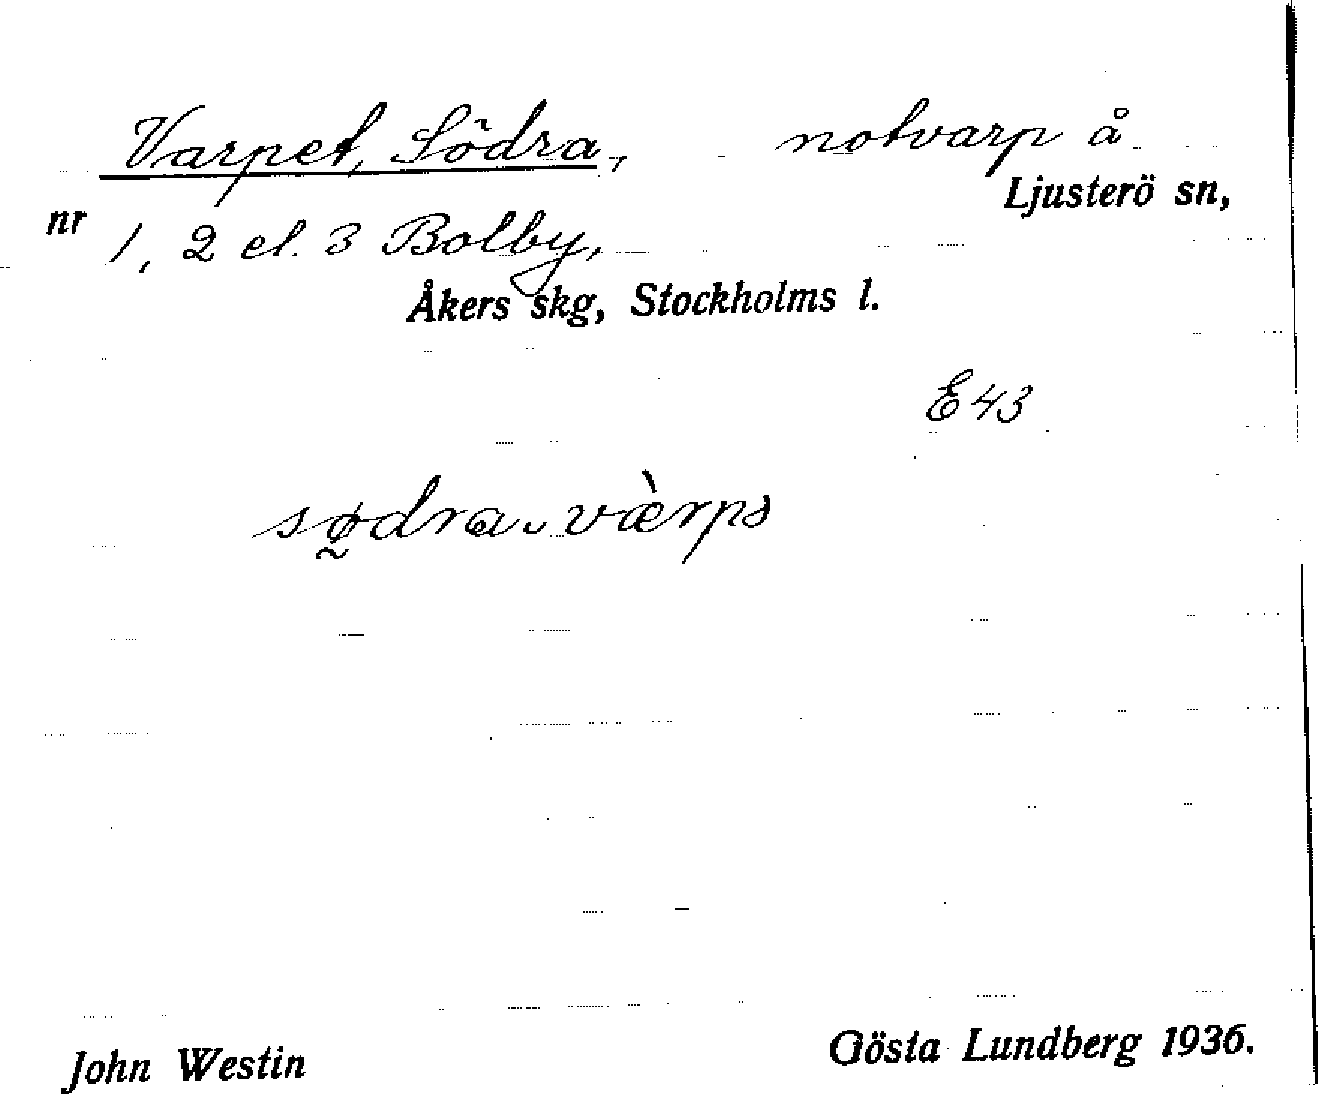 Varpet, Södra, notvarp å
Ljusterö sn,
nr 1, 2 el. 3 Bolby,
Åkers skg, Stockholms l.
E43
sødra vàrps
John Westin Gösta Lundberg 1936.